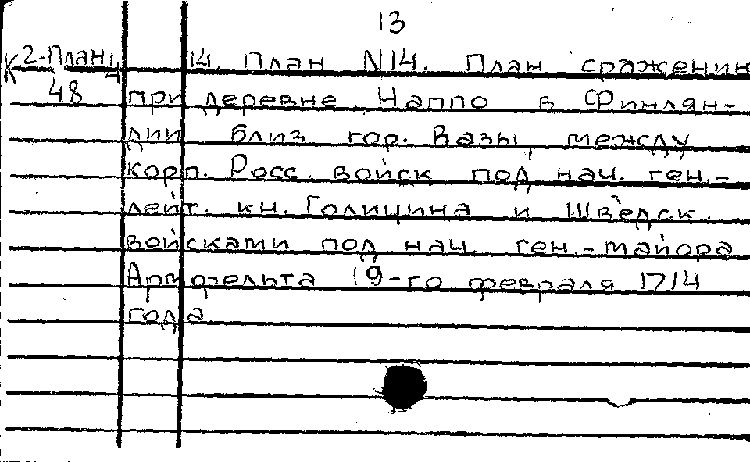 13
К 2-План 4
48
14. План №14. План сражении
при деревне Наппо в Финлян-
дии близ гор. Вазы, между
корп. Росс. войск под нач. ген.-
лейт. кн. Голицина и Шведск.
войсками под нач. ген.-майора
Армфельта 19-го февраля 1714
года.